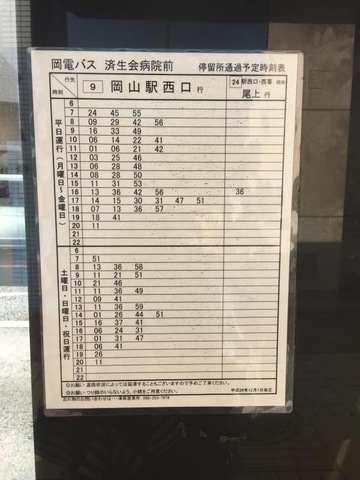 岡電バス 済生会病院前 停留所通過予定時刻表
行先 時刻 9 岡山駅西口 行 24 駅西口・西署 経由 尾上 行
平日運行(月曜日~金曜日)
6
7 24 45 55
8 09 29 42 56
9 16 33 49
10 06 14 22 41
11 01 06 21 42
12 03 25 46
13 06 28 48
14 08 28 50
15 11 31 53
16 13 36 42 56 36
17 14 15 30 31 47 51
18 07 13 36 57
19 18 41
20 11
21
22
土曜日・日曜日・祝日運行
6
7 51
8 13 36 58
9 11 21 51
10 21 46
11 11 36 49
12 09 41
13 11 36 59
14 01 26 44 51
15 16 37 41
16 06 24 31
17 01 31 47
18 06 41
19 26
20 11
21
22
◎お願い 道路状況によっては延滞することもございますので予めご了承ください。
◎お願い つり銭のいらないよう、小銭をご用意ください。 平成28年12月1日改正
忘れ物のお問い合わせは・・・津高営業所 086-253-7876